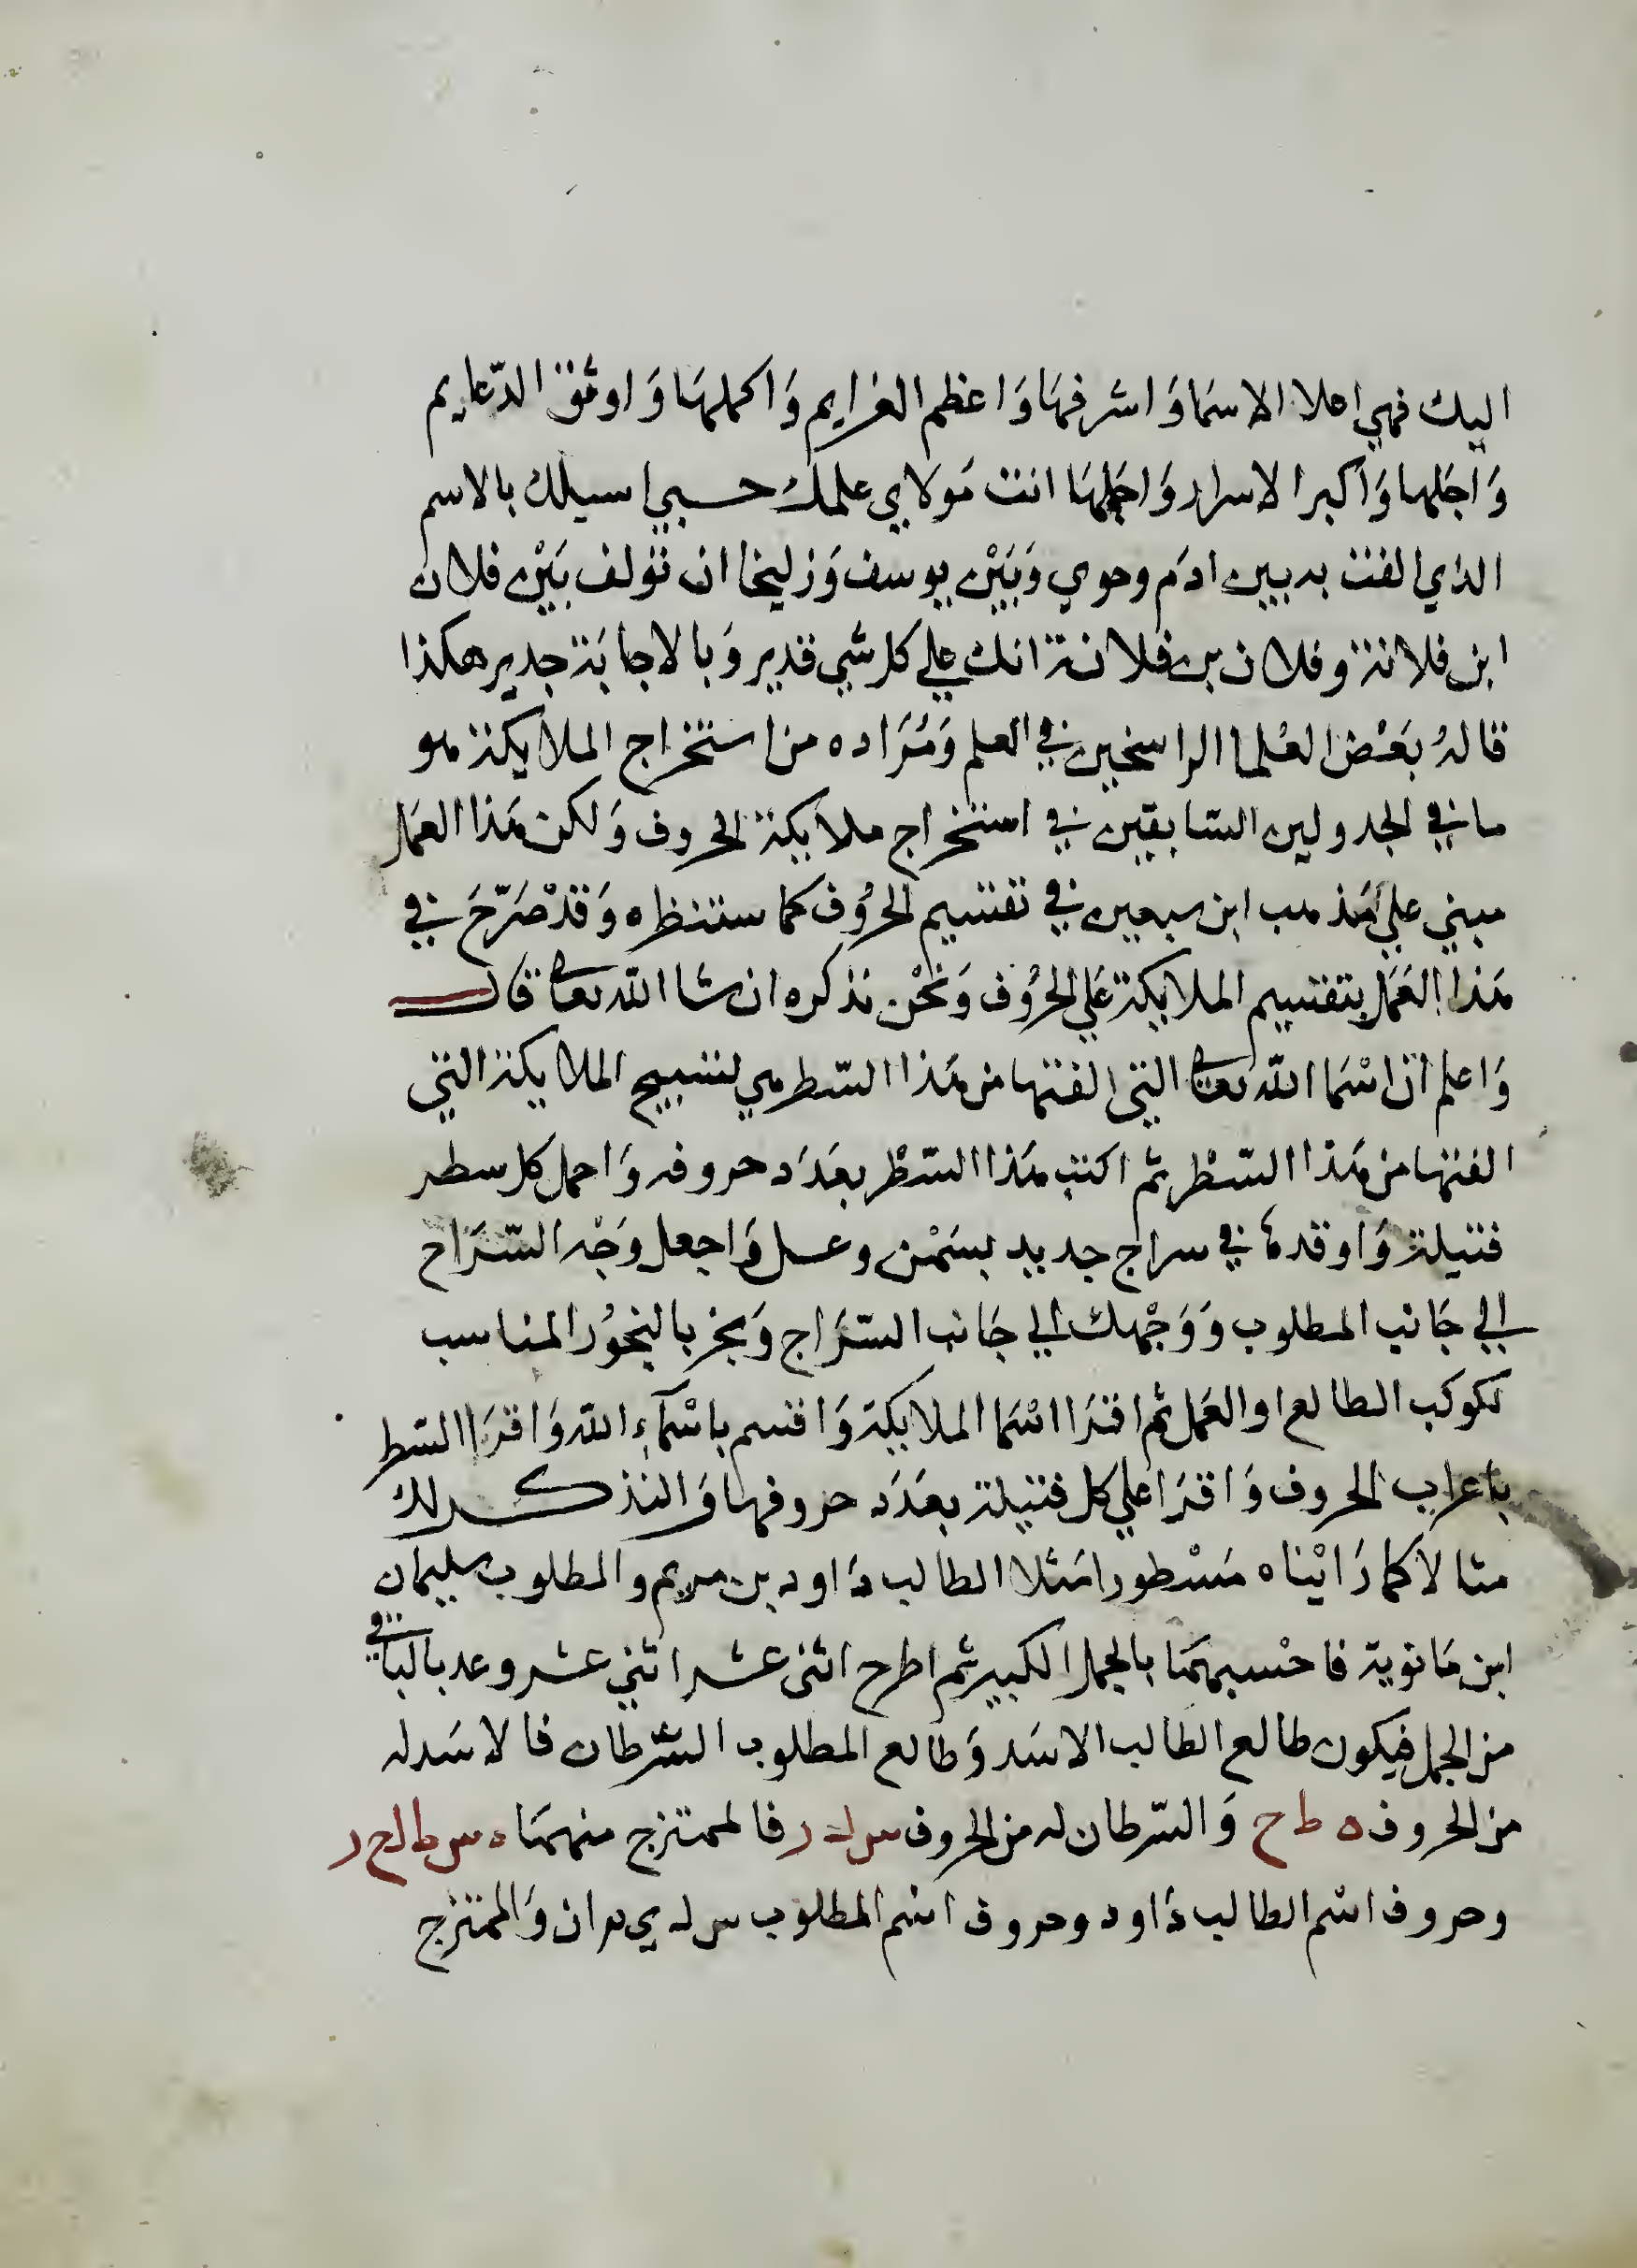 اليك فهي اعلا الاسما وَاشرفهَا وَاعظم العزايم وَاكملهَا وَاوثق الدّعايم
وَاجَلها وَاكبر الاسرار وَاجَملهَا انت مَولاي علمكَ حسبي اسيلك بالاسم
الذي الفت به بين ادَم وحوي وَبَيْن يوسف وَزليخا ان تولف بَيْن فلان
ابن فلانة وفلان بن فلانة انك علي كل شي قدير وَبالاجابَة جدير هكذا
قالهُ بَعْض العُلما الراسخين في العلم وَمُرَاده من استخراج الملايكة هو
ما في الجدولين السّابقين في استخراج ملايكة الحروف وَلكن هَذا العمَل
مبني علي مَذهب ابن سبعين في تقسيم الحرُوف كما ستنظره وَقدْ صَرّحَ في
هَذا العَمَل بتقسيم الملايكة عَلي الحرُوف وَنحْن نذكره ان شا الله تعالي قال
وَاعلم انّ اسْمَا الله تعالي التي الفتها من هَذا السّطر هي لتسبيح الملايكة التي
الفتها من هَذا السّطْر ثم اكتب هَذا السّطْر بعَدَد حروفه وَاحمل كل سطر
فتيلة وَاوقدهَا في سراج جديد بسَمْن وعسل وَاجعل وَجْه السّرَاج
الي جَانب المطلوب وَوَجْهك الي جَانب السّرَاج وَبخر بالبخوُر المناسب
لكوكب الطالع او العَمل ثم اقرَا اسْمَا الملايكة وَاقسم باسْمآءِ الله وَاقرَا السّطر
باعراب الحروف وَاقرَا علي كل فتيلة بعَدَد حروفهَا وَ لنذكر لك
مثالا كما رَايْناه مَسْطورا مَثلا الطالب دَاود بن مريم والمطلوب سليمان
ابن مَانوية فاحْسبهمَا بالجمل الكبير ثم اطرح اثنى عشر اثني عشر وعد بالباقي
من الحمل فيكون طالع الطالب الاسَد وَطالع المطلوب السّرطان فالاسَد له
من الحروف ه ط ح وَالسّرطان له من الحروف س ل ر فالممتزج منهمَا ه س ط ل ح ر
وحروف اسْم الطالب دَاود وحروف اسْم المطلوب س ل ي م ا ن وَالممتزج